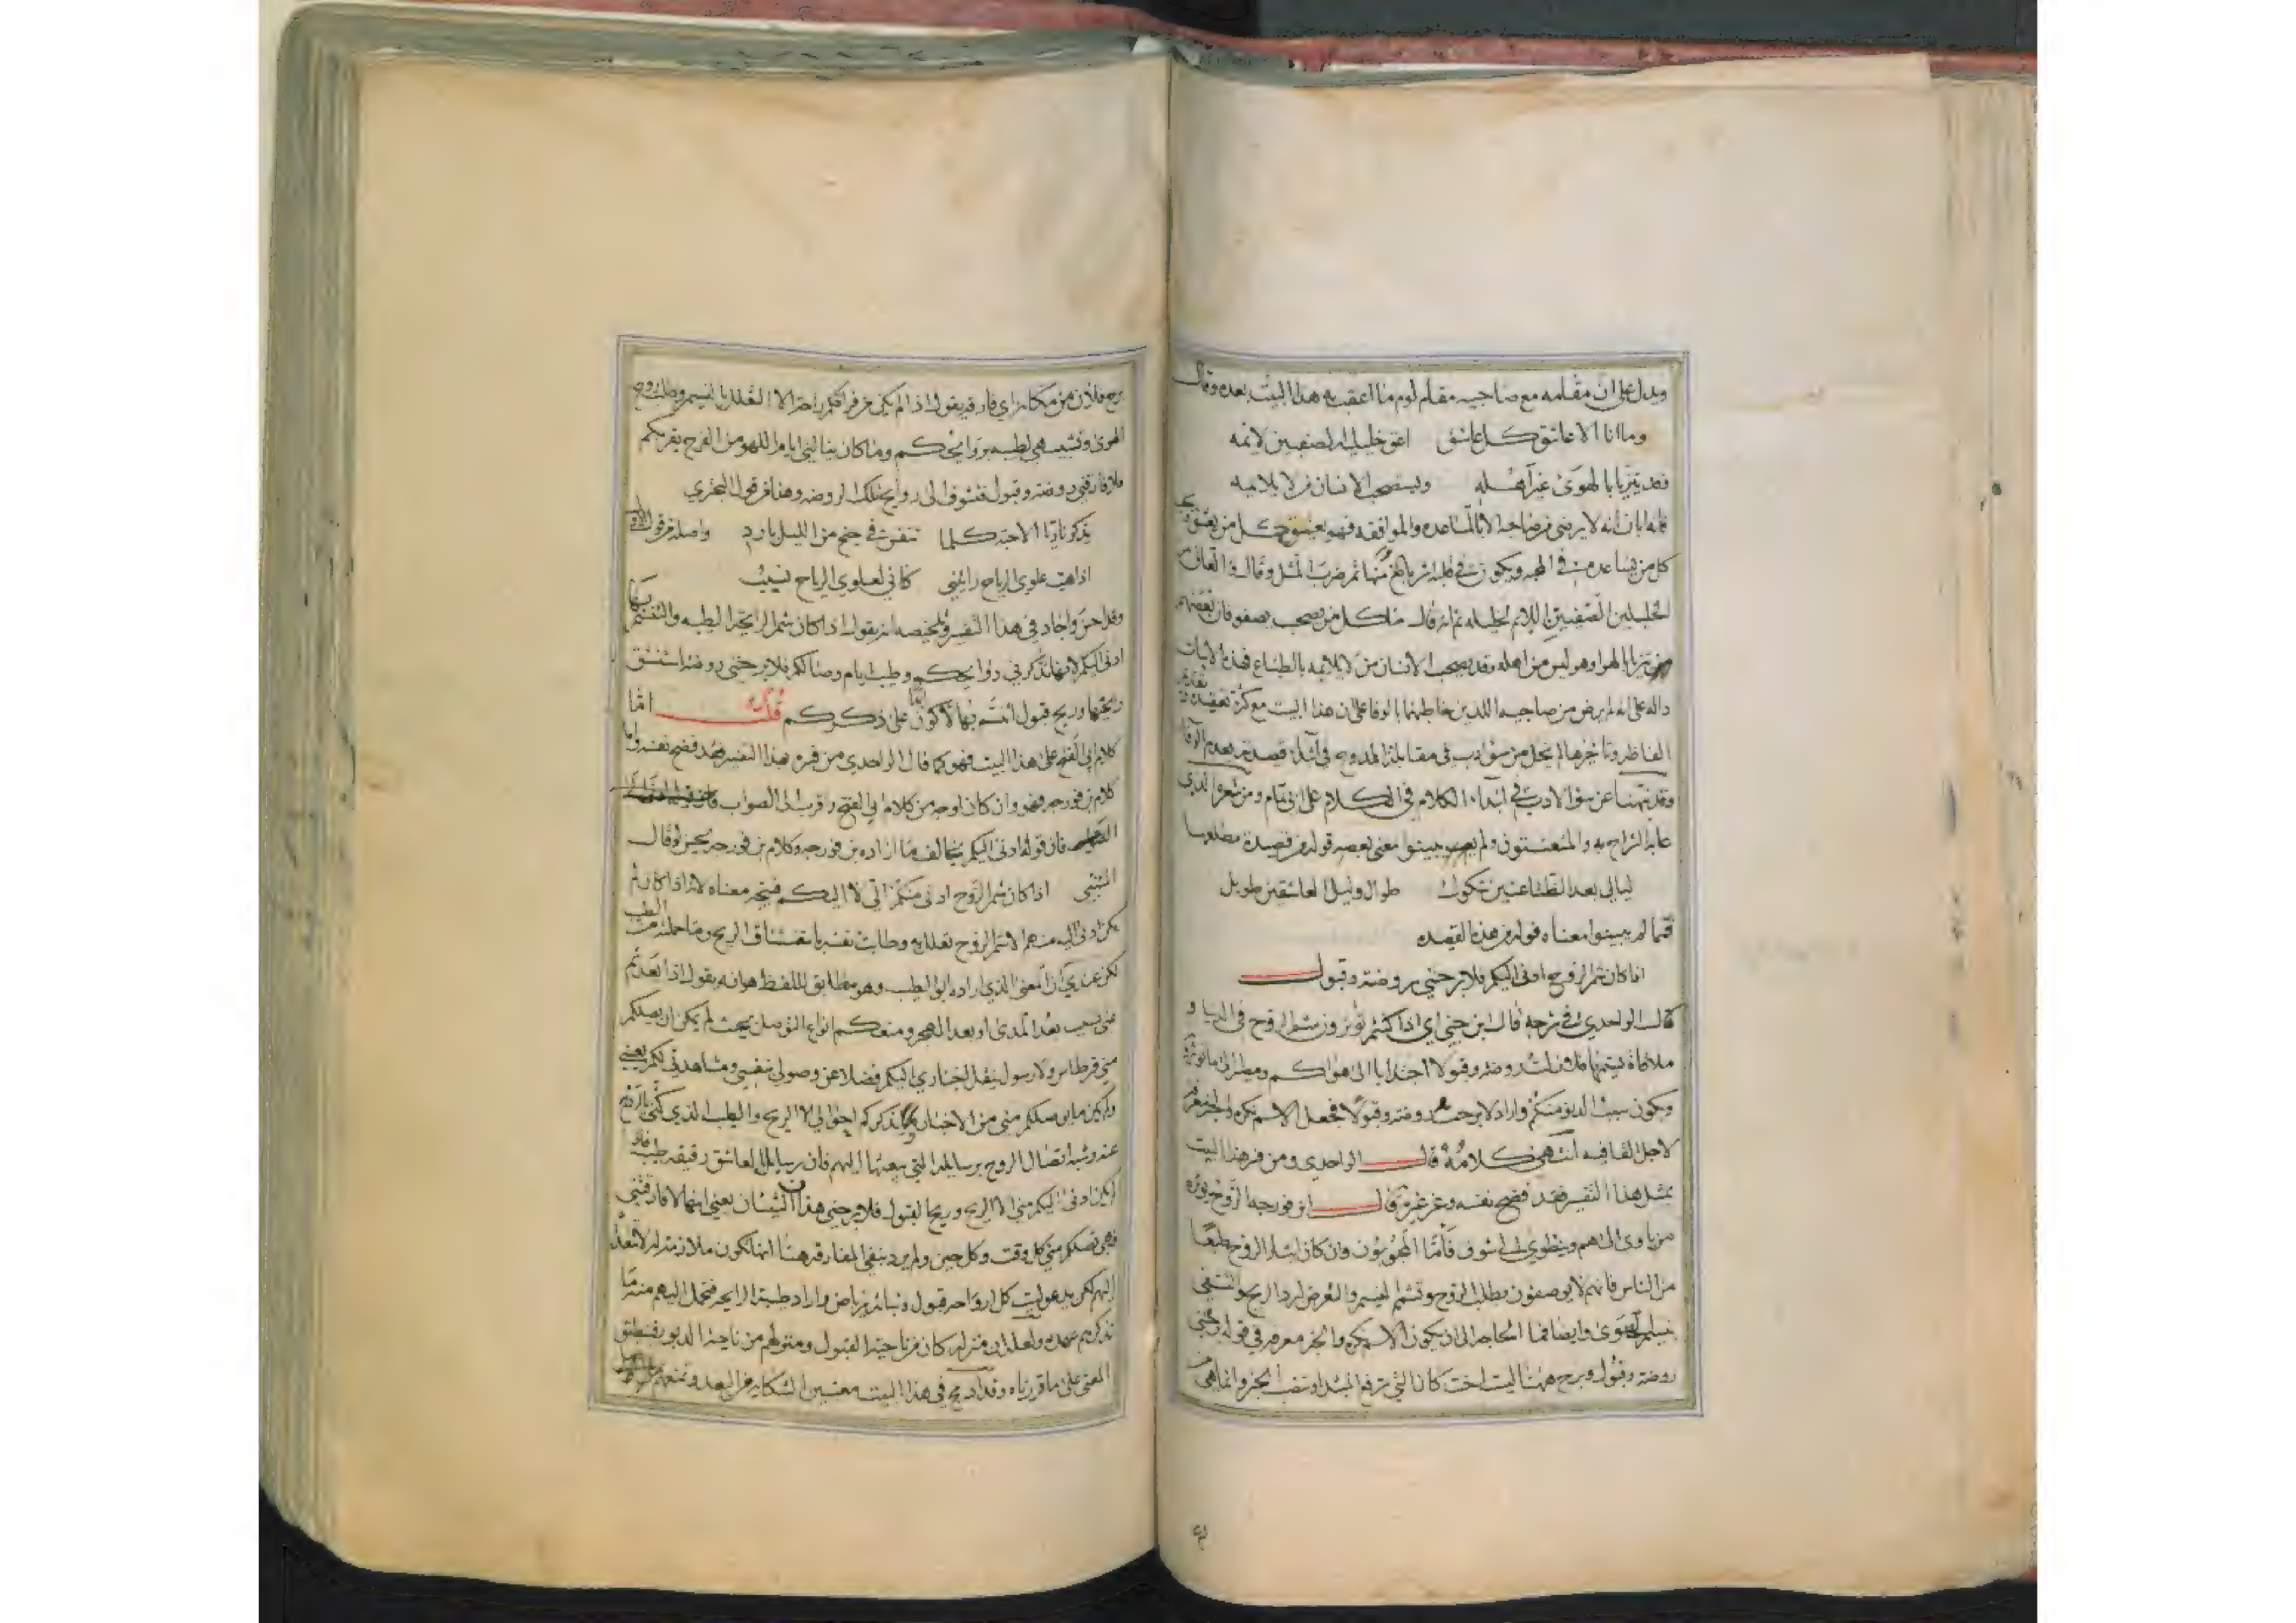 ويدل على ان مقامه مع صاحبيه مقام لوم ما اعقب به هذا البيت بعده وقال
وما انا الا عاشق كل عاشق اعق خليليه الصفيين لائمه
وقد يتزيا بالهوى غير اهله ويستصحب الانسان من لا يلائمه
فانه ابان انه لا يرضى من صاحبه الا بالمساعده والموافقه فهو يعشق كل من يعشق
كل من يساعده في المحبه ويكون في ثم ضرب المثل وقال
الخليلين الصفيين اللائم لخليله ثم انه قال ما كل من يصحب يصفو فان بعضهم
يتزيا بالهوا وهو ليس من اهله وقد يصحب الانسان من لا يلائمه بالطباع فهذه الابيات
داله على انه لم يرض من صاحبيه اللذين خاطبهما بالوفا على ان هذا البيت مع كثرة تعقيده
الفاظه وتاخرها لم يخل من سؤ ادب في مقابلة الممدوح في ابتداء قصيدته بعدم الوفا
وقد نبهنا عن سؤ الادب في ابتداء الكلام في الكلام على ابى تمام ومن شعره الذي
عابه الشراح به والمتعسفون ولم يبينوا معنى بعضه قوله من قصيدة مطلعها
ليالي بعد الظاعنين شكول طوال وليل العاشقين طويل
فما لم يبينوا معناه قوله من هذه القصيده
اذا كان شم الروح ادنى اليكم فلا برحتني روضة وقبول
قال الواحدي في شرحه قال ابن جني اي اذا كنتم تؤثرون شم الروح في الدنيا و
ملاقاة نسيمها فلا زلت روضه وقبولا انجذابا الى هواكم ومصيرا الى ما تؤثرونه
ويكون سبب الدنو منكم واراد لا برحت روضة وقبولا فجعل الاسم نكره والخبر معرفه
لاجل القافيه انتهى كلامه قال الواحدي ومن فسر هذا البيت
بمثل هذا التفسير فقد فضح نفسه وغر غيره قال ابن فورجه الروح يؤثره
من ياوى الى هم وينطوي الى شوق فاما المحبوبون وان كان ايثار الروح طبعا
من الناس فانهم لا يوصفون بطلب الروح وتشمم النسيم والتعرض لبرد الريح والتشفي
بنسيم الهوى وايضا فما الحاجه الى ان يكون الاسم نكره والخبر معرفه في قوله برحتني
روضة وقبول وبرح ههنا ليست اخت كان التي ترفع المبتدا وتنصب الخبر وانما هي
برح فلان من مكانه اي فارقه يقول اذا لم يكن من فراقكم راحة الا التعلل بالنسيم وطلب روح
الهوى وتشبيهي لطيبه بروايحكم وما كان ينالني ايام اللهو من الفرح بقربكم
فلا فارقتني روضة وقبول تشوقا الى روايح تلك الروضه وهذا من قول البحتري
يذكرنا ريا الاحبة كلما تنفس في جنح من الليل بارد واصله من قول
اذا هب علوي الرياح رايتني كاني لعلوي الرياح نسيب
وقد احسن واجاد في هذا التفسير وتلخيصه انه يقول اذا كان شم الرايحة الطيبه والتنسم بها
ادنى اليكم لانها تذكرني روايحكم وطيب ايام وصالكم فلا برحتني روضة استنشق
رايحتها وريح قبول اتنسم بها لاكون ابدا على ذكركم قلت اما
كلام ابي الفتح على هذا البيت فهو كما قال الواحدي من فسره هذا التفسير فقد فضح نفسه واما
كلام بن فورجه فهو وان كان اوجه من كلام ابي الفتح واقرب الى الصواب
فان قوله ادنى اليكم يخالف ما اراده بن فورجه وكلام بن فورجه يحسن لو قال
المتنبي اذا كان شم الروح ادنى منكم الي لا اليكم فيتجه معناه لانه اذا كان لم
يكن ادنى اليه منهم الا شم الروح تعلل به وطابت نفسه باستنشاق الريح وما حملته من الطيب
لكن عندي ان المعنى الذي اراده ابو الطيب وهو مطابق اللفظ هو انه يقول اذا بعدتم
عني بسبب بعد المدى او بعد الهجر ومنعكم انواع التوصل بحيث لم يكن ان يصلكم
مني قرطاس ولا رسول ينقل اخباري اليكم فضلا عن وصولي بنفسي ومشاهدتي لكم بعيني
ولم يكن ما يوصلكم مني من الاخبار احوالي الا الريح والطيب الذي كنى بالروح
عنه وشبه اتصال الروح برسايله التي يبعثها اليهم فان رسايل العاشق رقيقه طيبه
لم يكن ادنى اليكم مني الا الريح وريحا لقبول فلا برحتني هذان الشيئان يعني انهما لا فارقتني
فهي تصلكم مني كل وقت وكل حين ولم يرد بنفي المفارقه هنا انها تكون ملازمة له لا تتعداه
اليهم لكن يدعو ليت كل ارواحه قبول ونباته رياض واراد طيبة الرايحه فتحمل اليهم منه ما
تذكرهم عهده ولعله ان منزله كان من ناحية القبول ومنزلهم من ناحية الدبور فينطبق
المعنى على ما قررناه وقد ادمج في هذا البيت معنيين الشكايه من البعد وتمنعهم